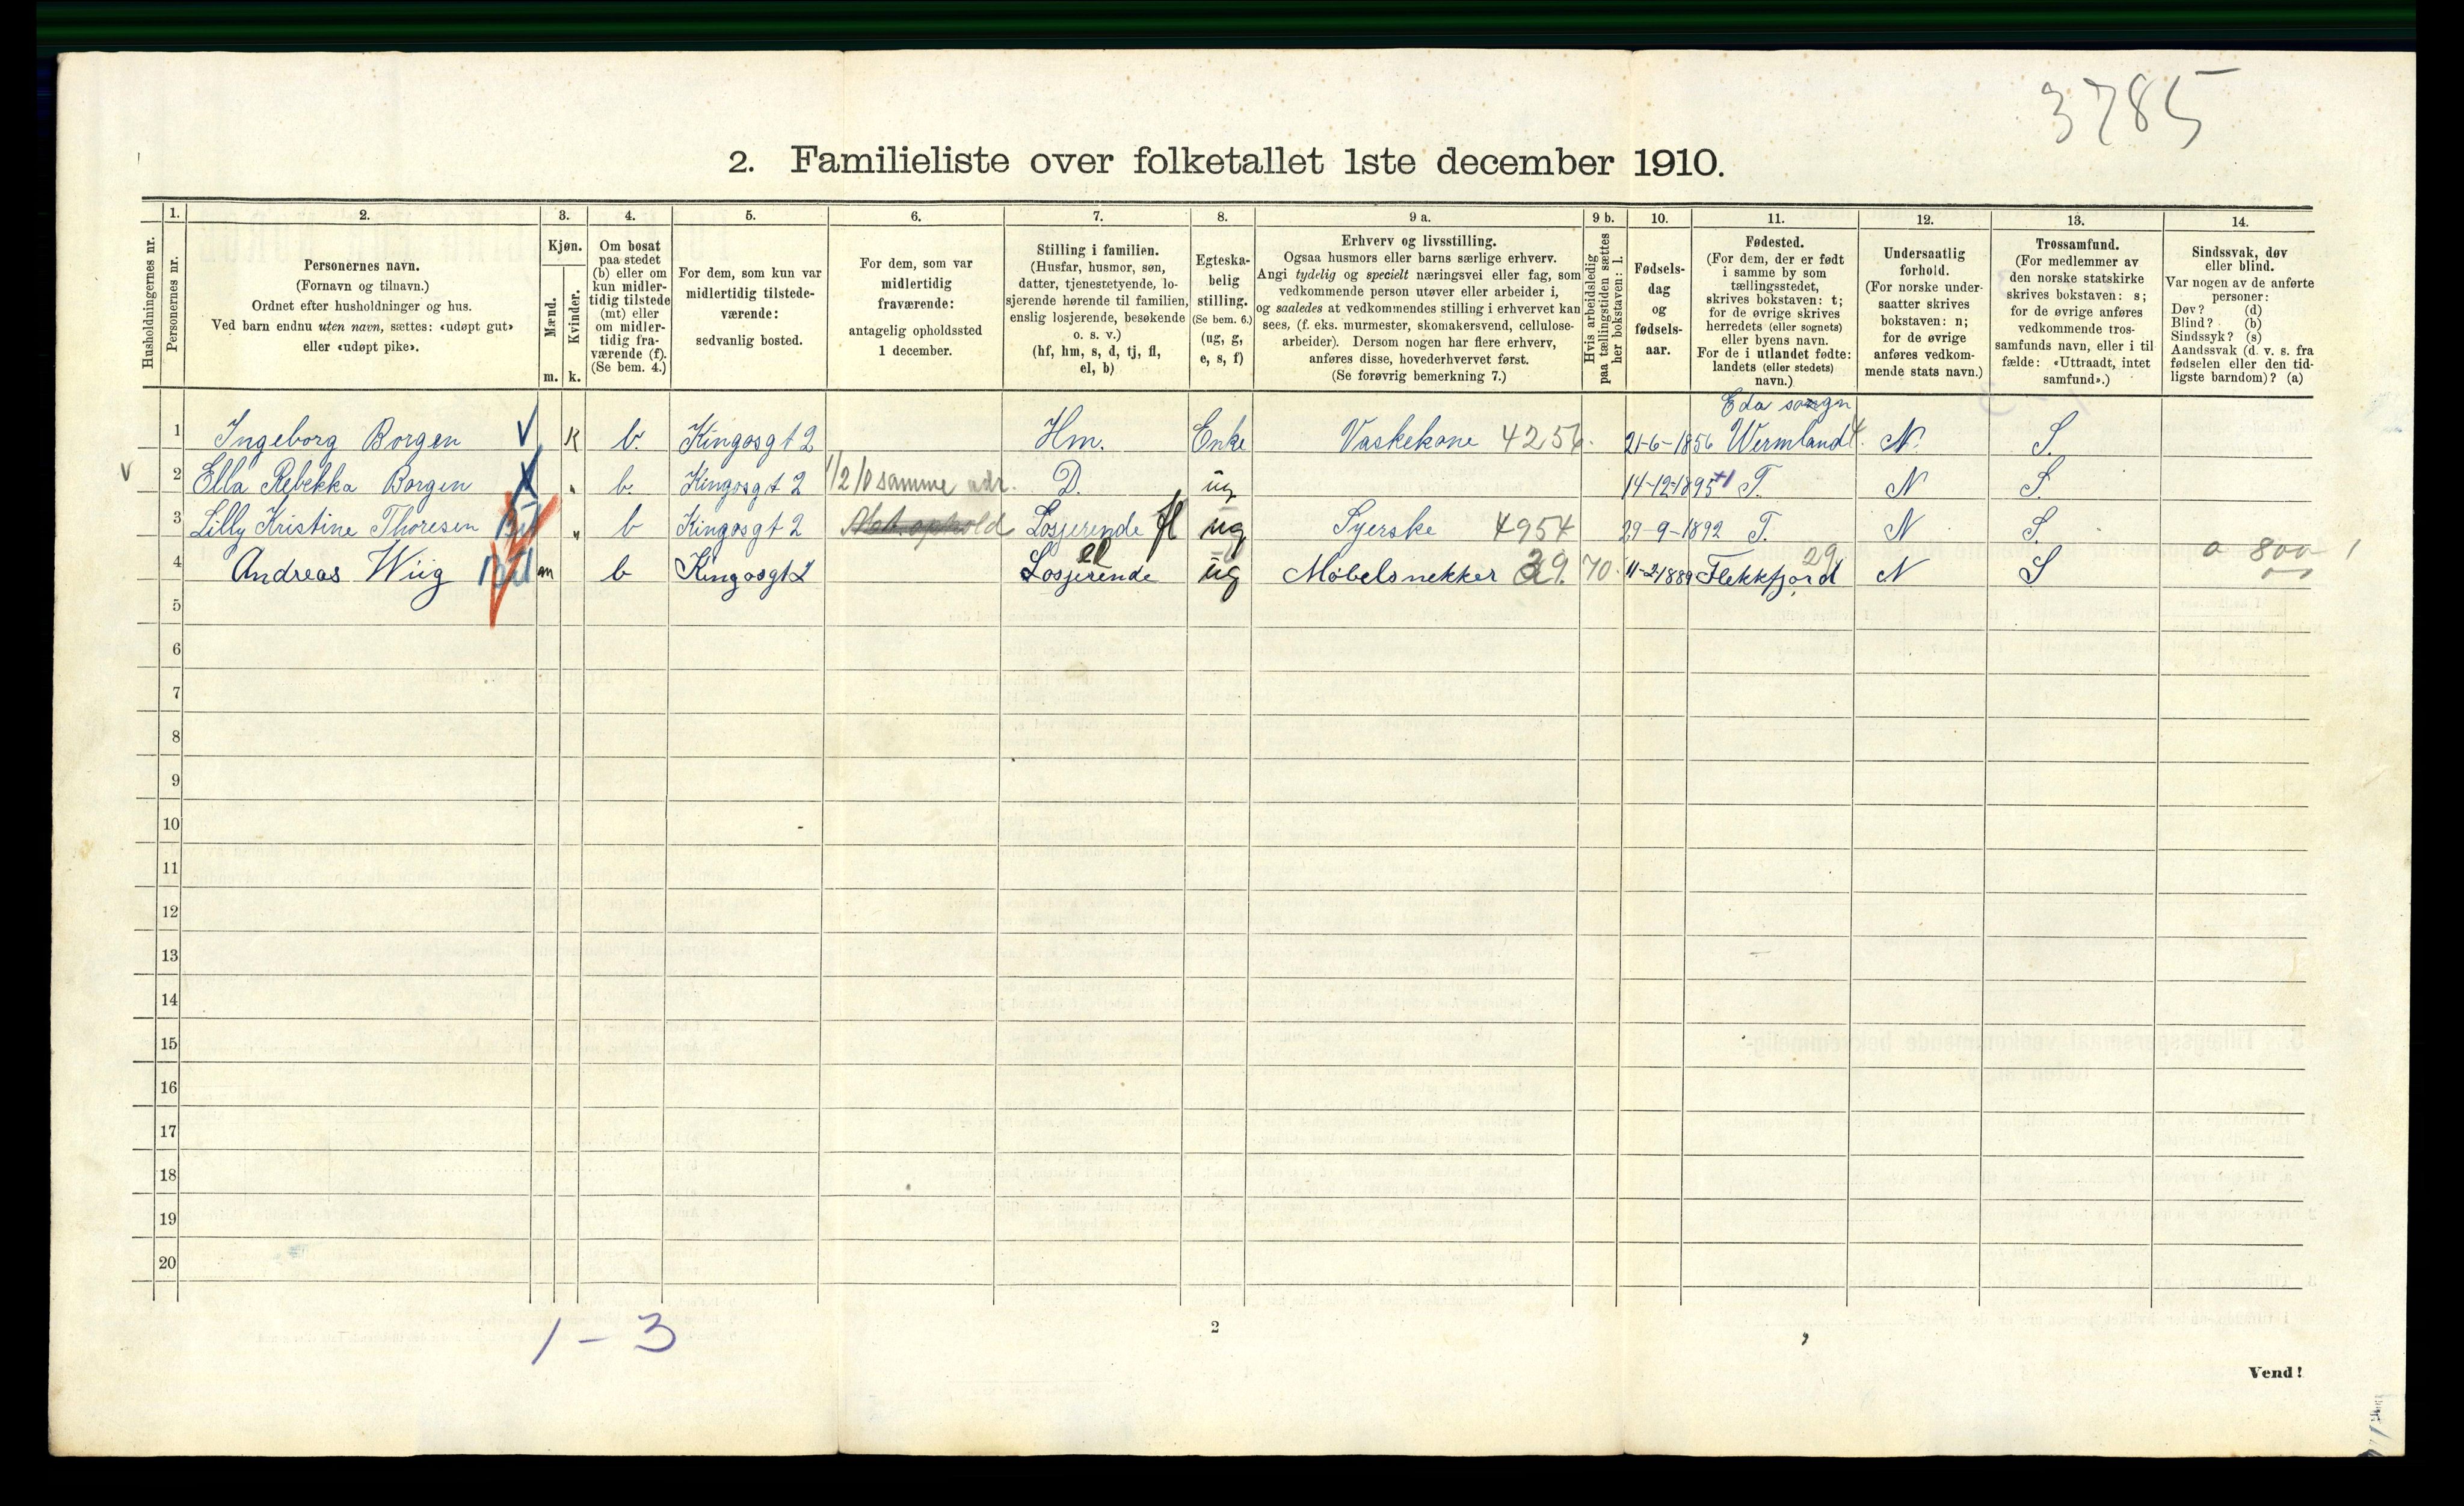 3785
2. Familieliste over folketallet 1ste december 1910.
Husholdningernes nr.
1.
Personernes nr.
2.
Personernes navn.
(Fornavn og tilnavn.)
Ordnet efter husholdninger og hus.
Ved barn endnu uten navn, sættes: «udøpt gut»
eller «udøpt pike».
3.
Kjøn.
Mænd.
Kvinder.
m. k.
4.
Om bosat
paa stedet
(b) eller om
kun midler-
tidig tilstede
(mt) eller
om midler-
tidig fra-
værende (f).
(Se bem. 4.)
5.
For dem, som kun var
midlertidig tilstede-
værende:
sedvanlig bosted.
6.
For dem, som var
midlertidig
fraværende:
antagelig opholdssted
1 december.
7.
Stilling i familien.
(Husfar, husmor, søn,
datter, tjenestetyende, lo-
sjerende hørende til familien,
enslig losjerende, besøkende
o. s. v.)
(hf, hm, s, d, tj, fl,
el, b)
8.
Egteska-
belig
stilling.
(Se bem. 6.)
(ug, g,
e, s, f)
9 a.
Erhverv og livsstilling.
Ogsaa husmors eller barns særlige erhverv.
Angi tydelig og specielt næringsvei eller fag, som
vedkommende person utøver eller arbeider i,
og saaledes at vedkommendes stilling i erhvervet kan
sees, (f. eks. murmester, skomakersvend, cellulose-
arbeider). Dersom nogen har flere erhverv,
anføres disse, hovederhvervet først.
(Se forøvrig bemerkning 7.)
9 b.
Hvis arbeidsledig
paa tællingstiden sættes
her bokstaven: l.
10.
Fødsels-
dag
og
fødsels-
aar.
11.
Fødested.
(For dem, der er født
i samme by som
tællingsstedet,
skrives bokstaven: t;
for de øvrige skrives
herredets (eller sognets)
eller byens navn.
For de i utlandet fødte:
landets (eller stedets)
navn.)
12.
Undersaatlig
forhold.
(For norske under-
saatter skrives
bokstaven: n;
for de øvrige
anføres vedkom-
mende stats navn.)
13.
Trossamfund.
(For medlemmer av
den norske statskirke
skrives bokstaven: s;
for de øvrige anføres
vedkommende tros-
samfunds navn, eller i til
fælde: «Uttraadt, intet
samfund».)
14.
Sindssvak, døv
eller blind.
Var nogen av de anførte
personer:
Døv? (d)
Blind? (b)
Sindssyk? (s)
Aandssvak (d. v. s. fra
fødselen eller den tid-
ligste barndom)? (a)
Eda sogn
1 Ingeborg Borgen V K b. Kingosgt 2 Hm. Enke Vaskekone 4256. 21-6-1856 Wermland N. S.
V 2 Ella Rebekka Borgen " b. Kingosgt 2 1/2 10 samme adr. D. ug 14-12-1895 T. N S
3 Lilly Kristine Thoresen " b Kingosgt 2 Losjerende fl ug Syerske 4954 29-9-1892 T. N S.
el 29 0 800 1
4 Andreas Wiig m b Kingosgt 2 Losjerende ug Møbelsnekker 70 11-2-1889 Flekkfjord N S
5
6
7
8
9
10
11
12
13
14
15
16
17
18
19
20
1-3
2
Vend!